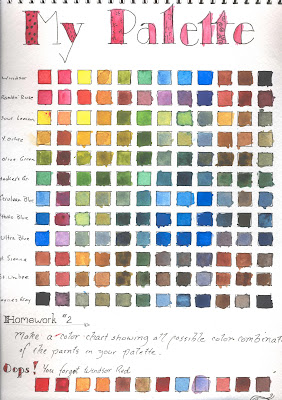 My Palette
Windsor
Rose
Lemon
Ochre
Olive Green
Green
Cerulean Blue
Blue
Ultra Blue
Sienna
Umber
Gray
Homework #2
Make a color chart showing all possible color combinat
of the paints in your palette.
Oops! You forgot Windsor Red